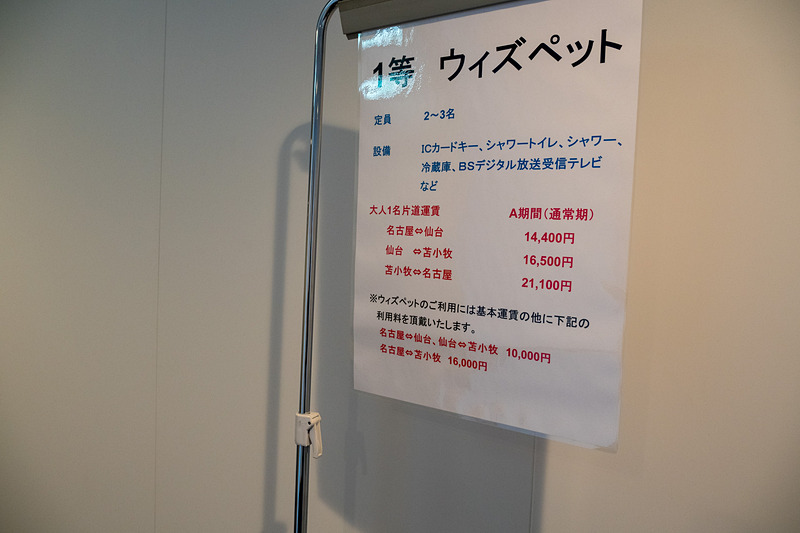 1等 ウィズペット
定員 2〜3名
設備 ICカードキー、シャワートイレ、シャワー、
冷蔵庫、BSデジタル放送受信テレビ
など
大人1名片道運賃 A期間(通常期)
名古屋⇔仙台 14,400円
仙台 ⇔苫小牧 16,500円
苫小牧⇔名古屋 21,100円
※ウィズペットのご利用には基本運賃の他に下記の
利用料を頂戴いたします。
名古屋⇔仙台、仙台⇔苫小牧 10,000円
名古屋⇔苫小牧 16,000円